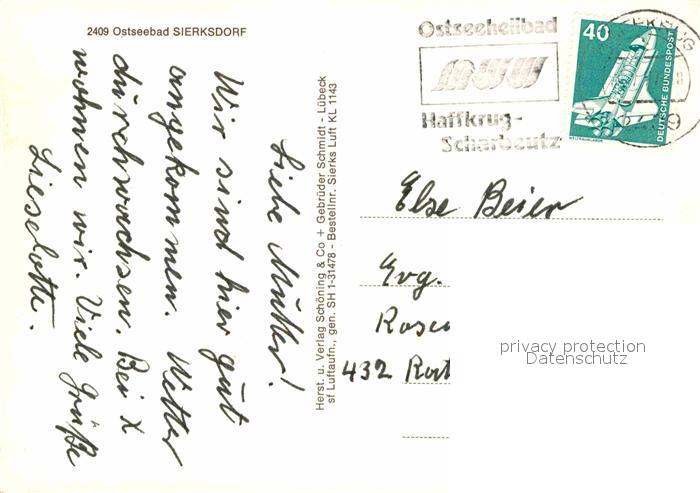 2409 Ostseebad SIERKSDORF
Liebe Mutter!
Wir sind hier gut
angekommen. Wetter
durchwachsen. Bei X
wohnen wir. Viele Grüße
Lieselotte.
Herst. u. Verlag Schöning & Co + Gebrüder Schmidt - Lübeck
sf Luftaufn., gen. SH 1-31478 - Bestellnr. Sierks Luft KL 1143
Ostseeheilbad
Haffkrug-
Scharbeutz
40
DEUTSCHE BUNDESPOST
Else Beier
Evg.
432
privacy protection
Datenschutz